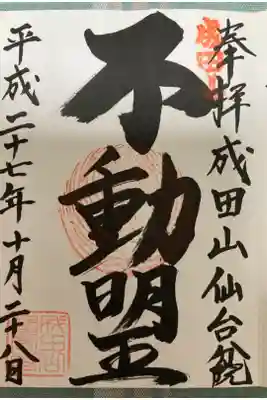 奉拝 成田山仙台分院
不動明王
平成二十七年十月二十八日
成田山